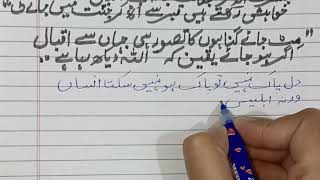 خواہش رکھتے ہیں قبر سے اٹھ کر جنت میں جانے کی"
"مٹ جائے گناہوں کا تصور ہی جہاں سے اقبال
اگر ہو جائے یقین کہ اللہ دیکھ رہا ہے ..
دل پاک نہیں تو پاک ہو نہیں سکتا انساں
ورنہ ابلیس